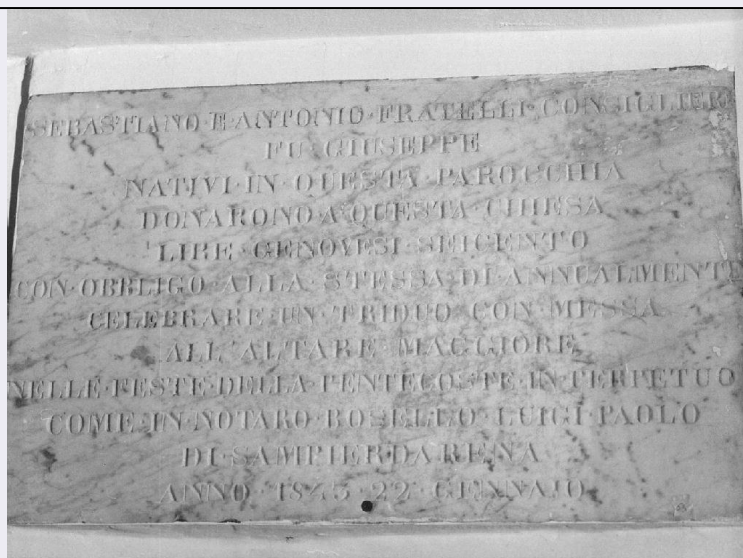 SEBASTIANO·E·ANTONIO·FRATELLI·CONSIGLIERI
FU·GIUSEPPE
NATIVI·IN·QUESTA·PAROCCHIA
DONARONO·A·QUESTA·CHIESA
LIRE·GENOVESI·SEICENTO
CON·OBBLIGO·ALLA·STESSA·DI·ANNUALMENTE
CELEBRARE·UN·TRIDUO·CON·MESSA
ALL'ALTARE·MAGGIORE
NELLE·FESTE·DELLA·PENTECOSTE·IN·PERPETUO
COME·IN·NOTARO·ROSELLO·LUIGI·PAOLO
DI·SAMPIERDARENA
ANNO·1845·22·GENNAJO